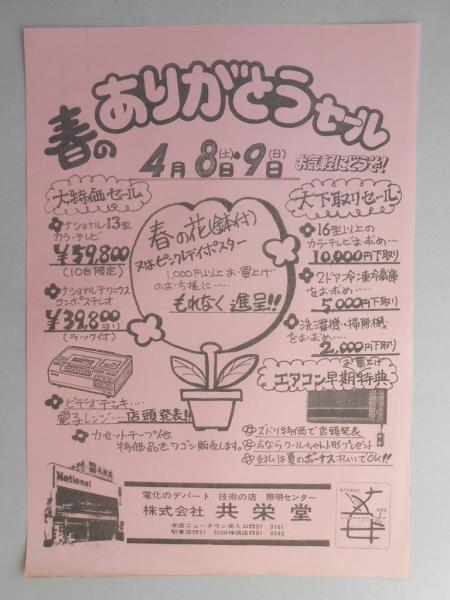 春の
ありがとう
セール
4月8日(土)・9日(日)
お気軽にどうぞ!
大特価セール
ナショナル13型
カラーテレビ
¥59,800
(10台限定)
ナショナルテクニクス
コンポステレオ
¥39,800ヨリ
(ラック付)
ビデオデッキ・・・・
電子レンジ・・・店頭発表!!
カセットテープ他
特価品をワゴン販売します。
春の花(鉢付)
又はピンクレディポスター
1,000円以上お買上げ
のお方様に・・・・・
もれなく進呈!!
大下取りセール
16型以上の
カラーテレビお求め・・・
10,000円下取り
2ドア冷凍冷蔵庫
をお求め・・・・・
5,000円下取り
洗濯機・掃除機
をお求め・・・・
2,000円下取り
お買上げ
エアコン早期特典
ズバリ特価で店頭発表
今ならクールちゃん人形プレゼント
お払は夏のボーナス払いでOK!!
National
電化のデパート 技術の店 照明センター
株式会社 共栄堂
本店ニュータウン南入口